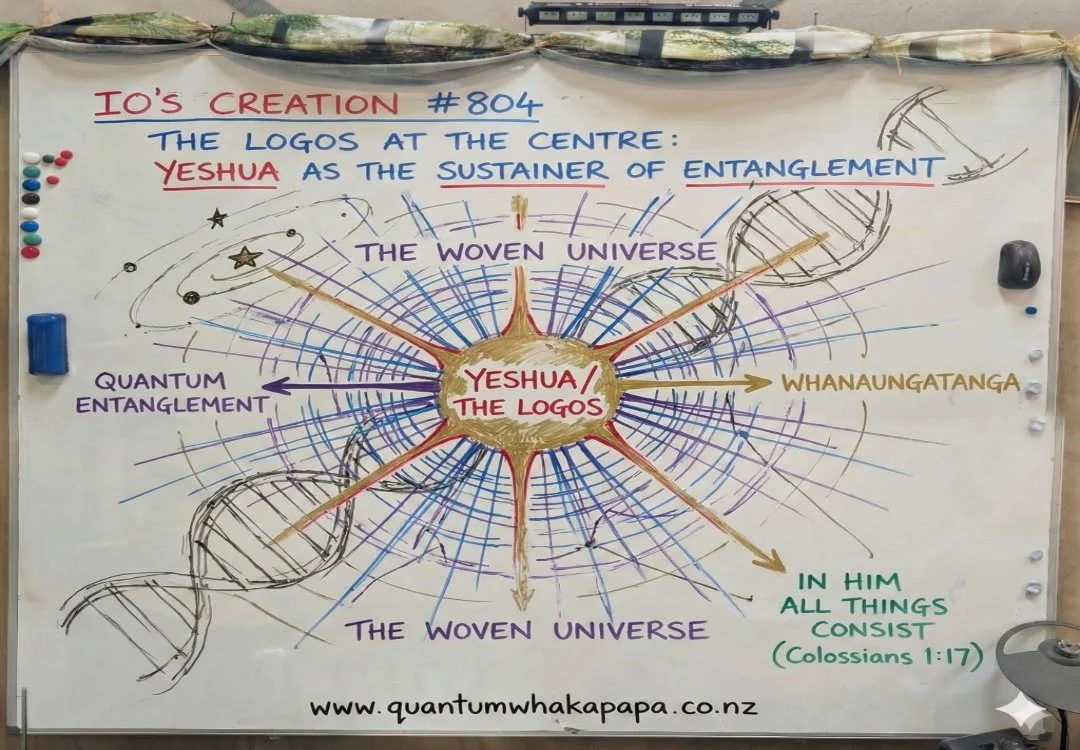 IO'S CREATION #804
THE LOGOS AT THE CENTRE:
YESHUA AS THE SUSTAINER OF ENTANGLEMENT
THE WOVEN UNIVERSE
YESHUA/
THE LOGOS
QUANTUM
ENTANGLEMENT
WHANAUNGATANGA
IN HIM
ALL THINGS
CONSIST
(Colossians 1:17)
THE WOVEN UNIVERSE
www.quantumwhakapapa.co.nz